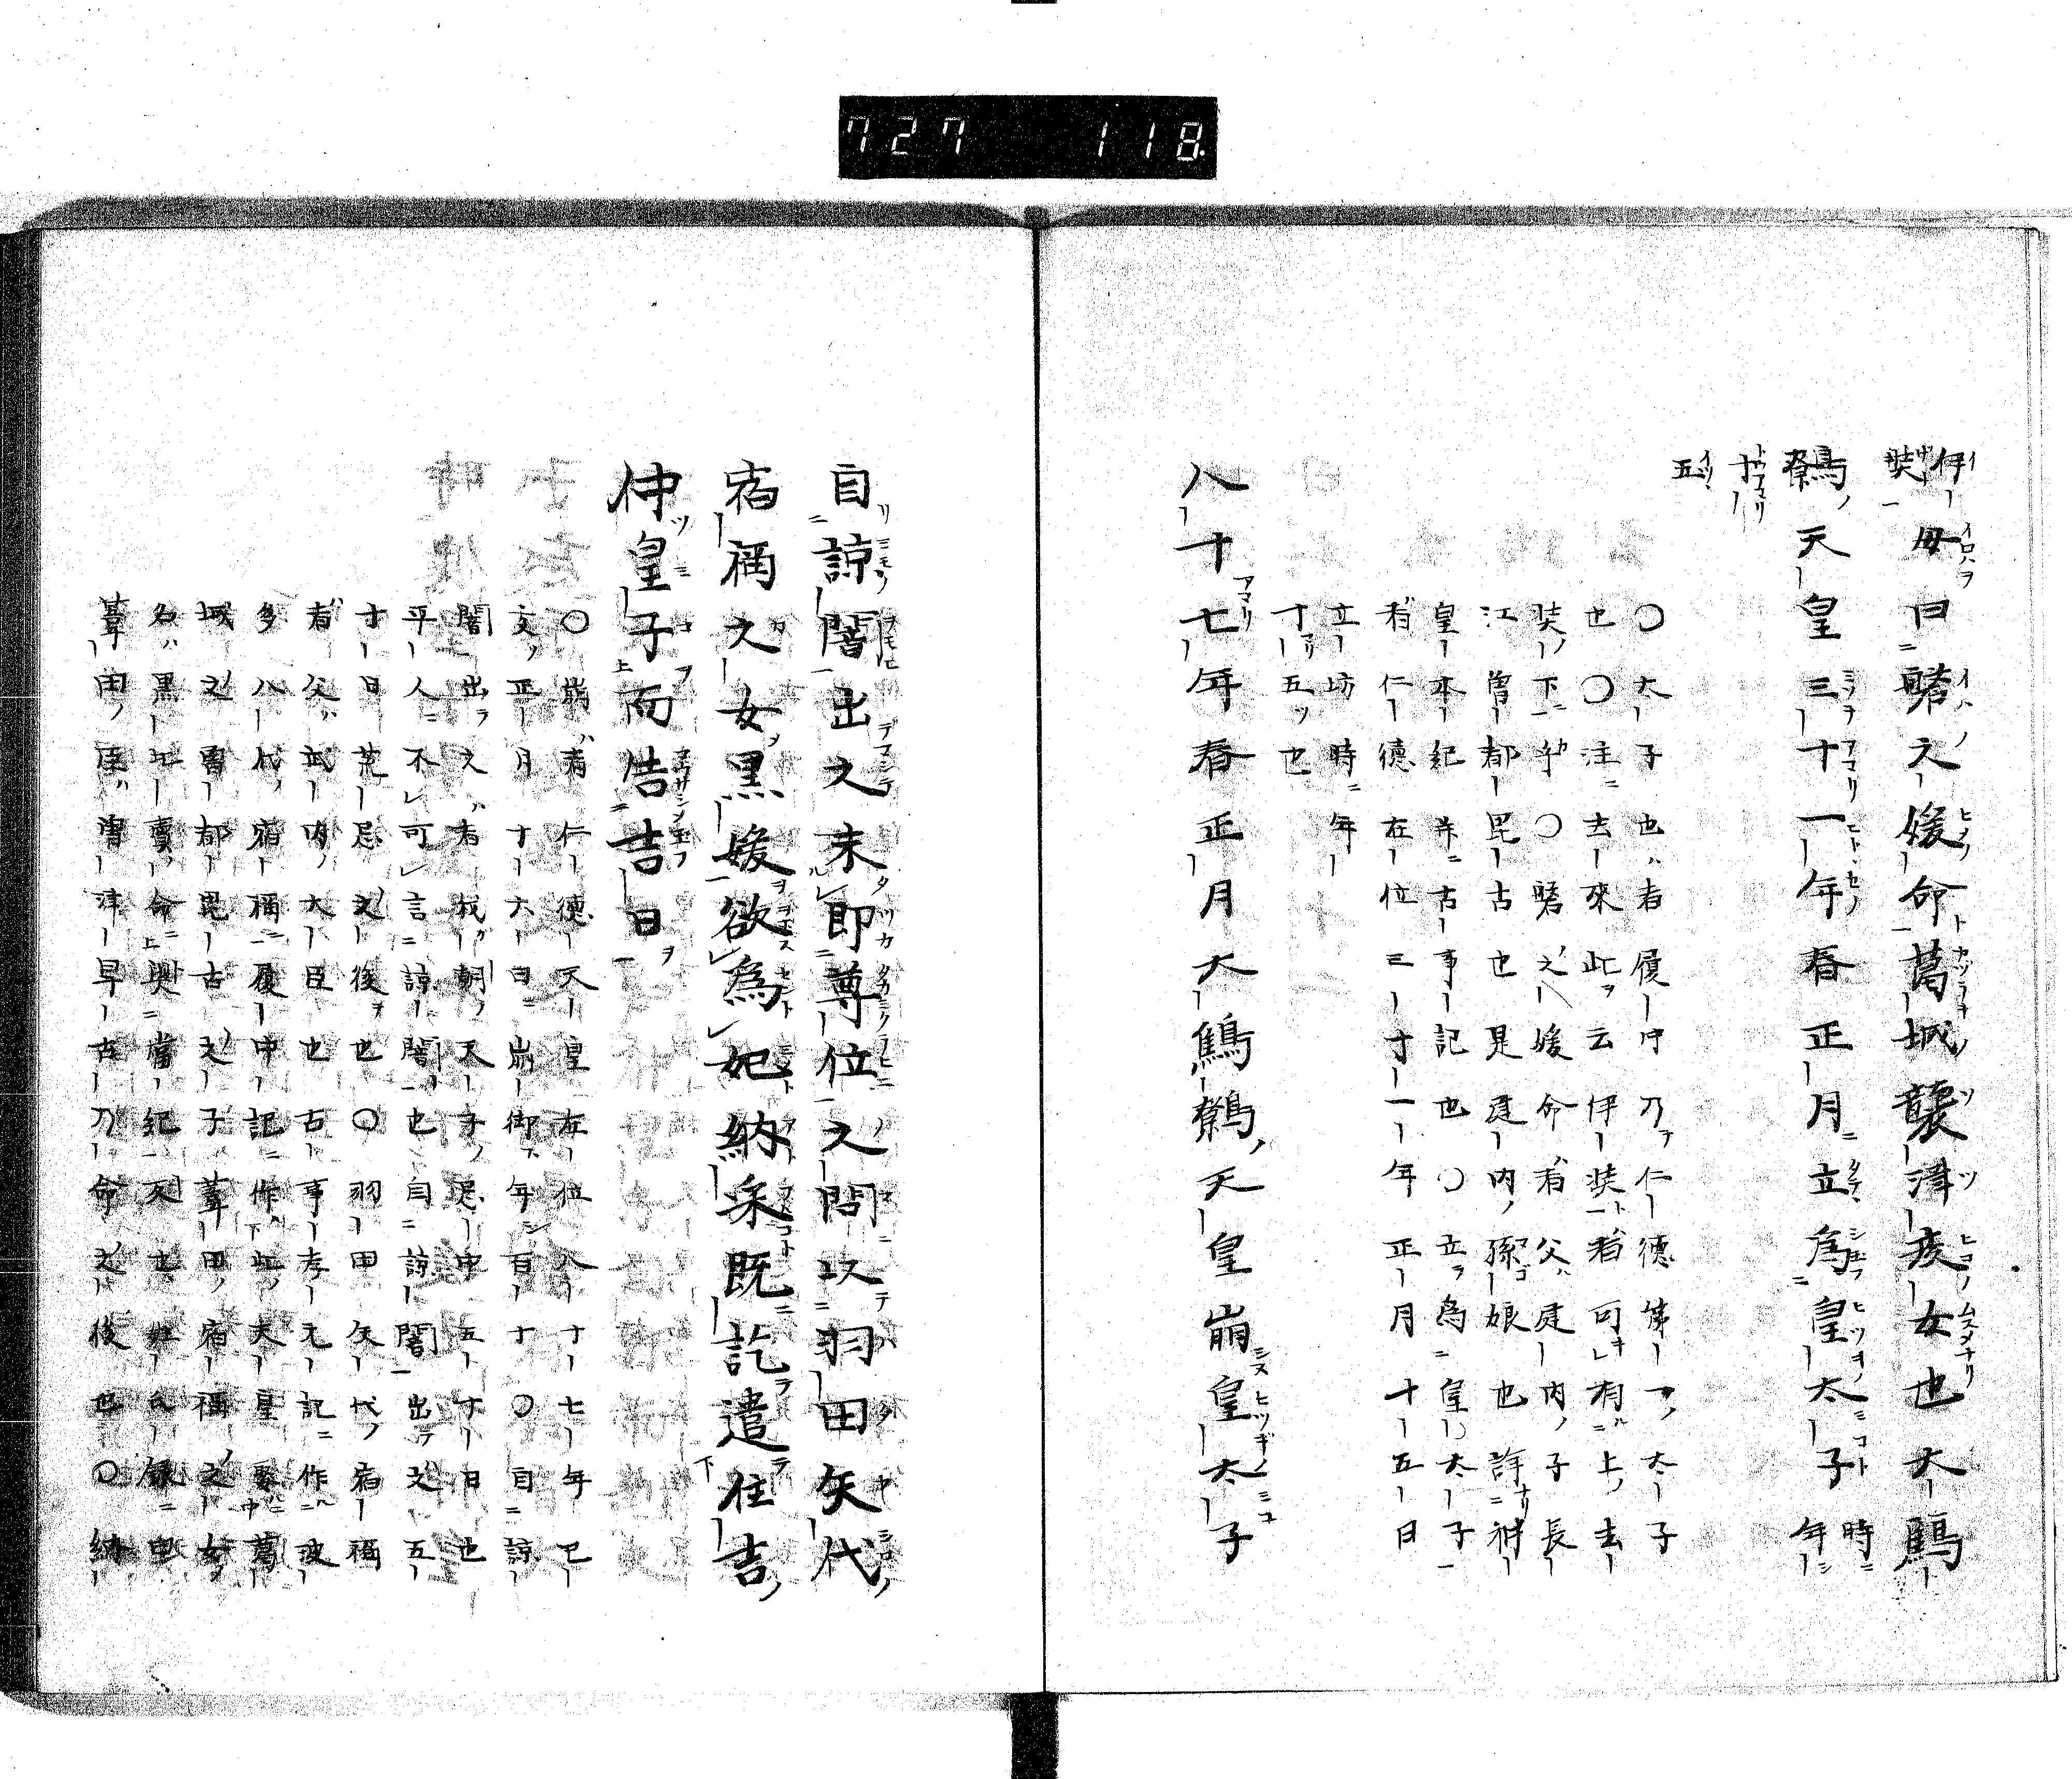 727 118
伊弉 母曰磐之媛命葛城襲津彦女也大鷦
鷯天皇三十一年春正月立為皇太子 時年
十五
○太子也者履中乃仁德第一太子
也○注去來此云伊弉者可有上去
弉下乎○磐之媛命者父建内子長
江曽都毘古也是建内孫娘也詳神
皇本紀并古事記也○立為皇太子
者仁德在位三十一年正月十五日
立坊時年
十五也
八十七年春正月大鷦鷯天皇崩皇太子
自諒闇出之未即尊位之間以羽田矢代
宿禰之女黒媛欲為妃納采既訖遣住吉
仲皇子而告吉日
○崩者仁德天皇在位八十七年
文正月十六日崩御年百十○自諒
闇出之者我朝天子忌中五十日也
平人不可言諒闇也自諒闇出之五
十日荒忌之後也○羽田矢代宿禰
者父武内大臣也古事孝元記作波
多八代宿禰履中記作此大皇娶葛
城之曽都毘古之子葦田宿禰之女
名黒比賣命與當紀
葦田臣津早古乃命之後也○納